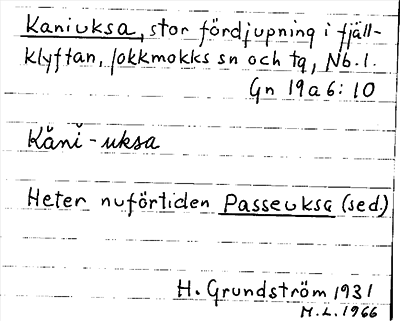 Kaniuksa, stor fördjupning i fjäll-
klyftan, Jokkmokks sn och tg, Nb. l.
Gn 19a6:10
Kăni-uksa
Heter nuförtiden Passeuksa (sed.)
H. Grundström 1931
M.L. 1966